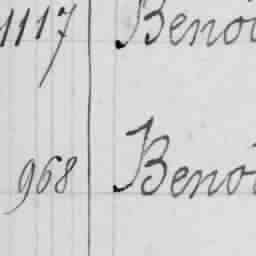 1117 Benoi
968 Benoi